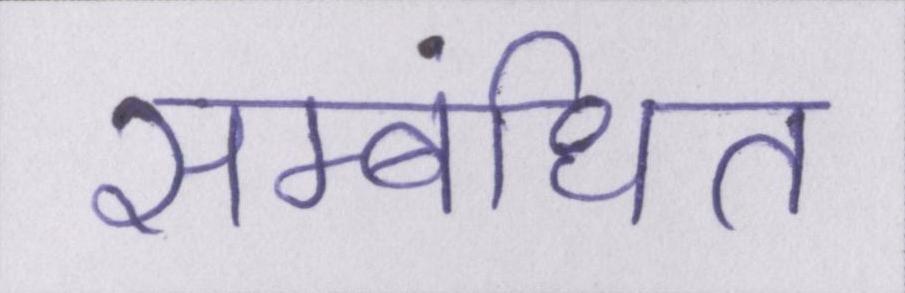 सम्बंधित